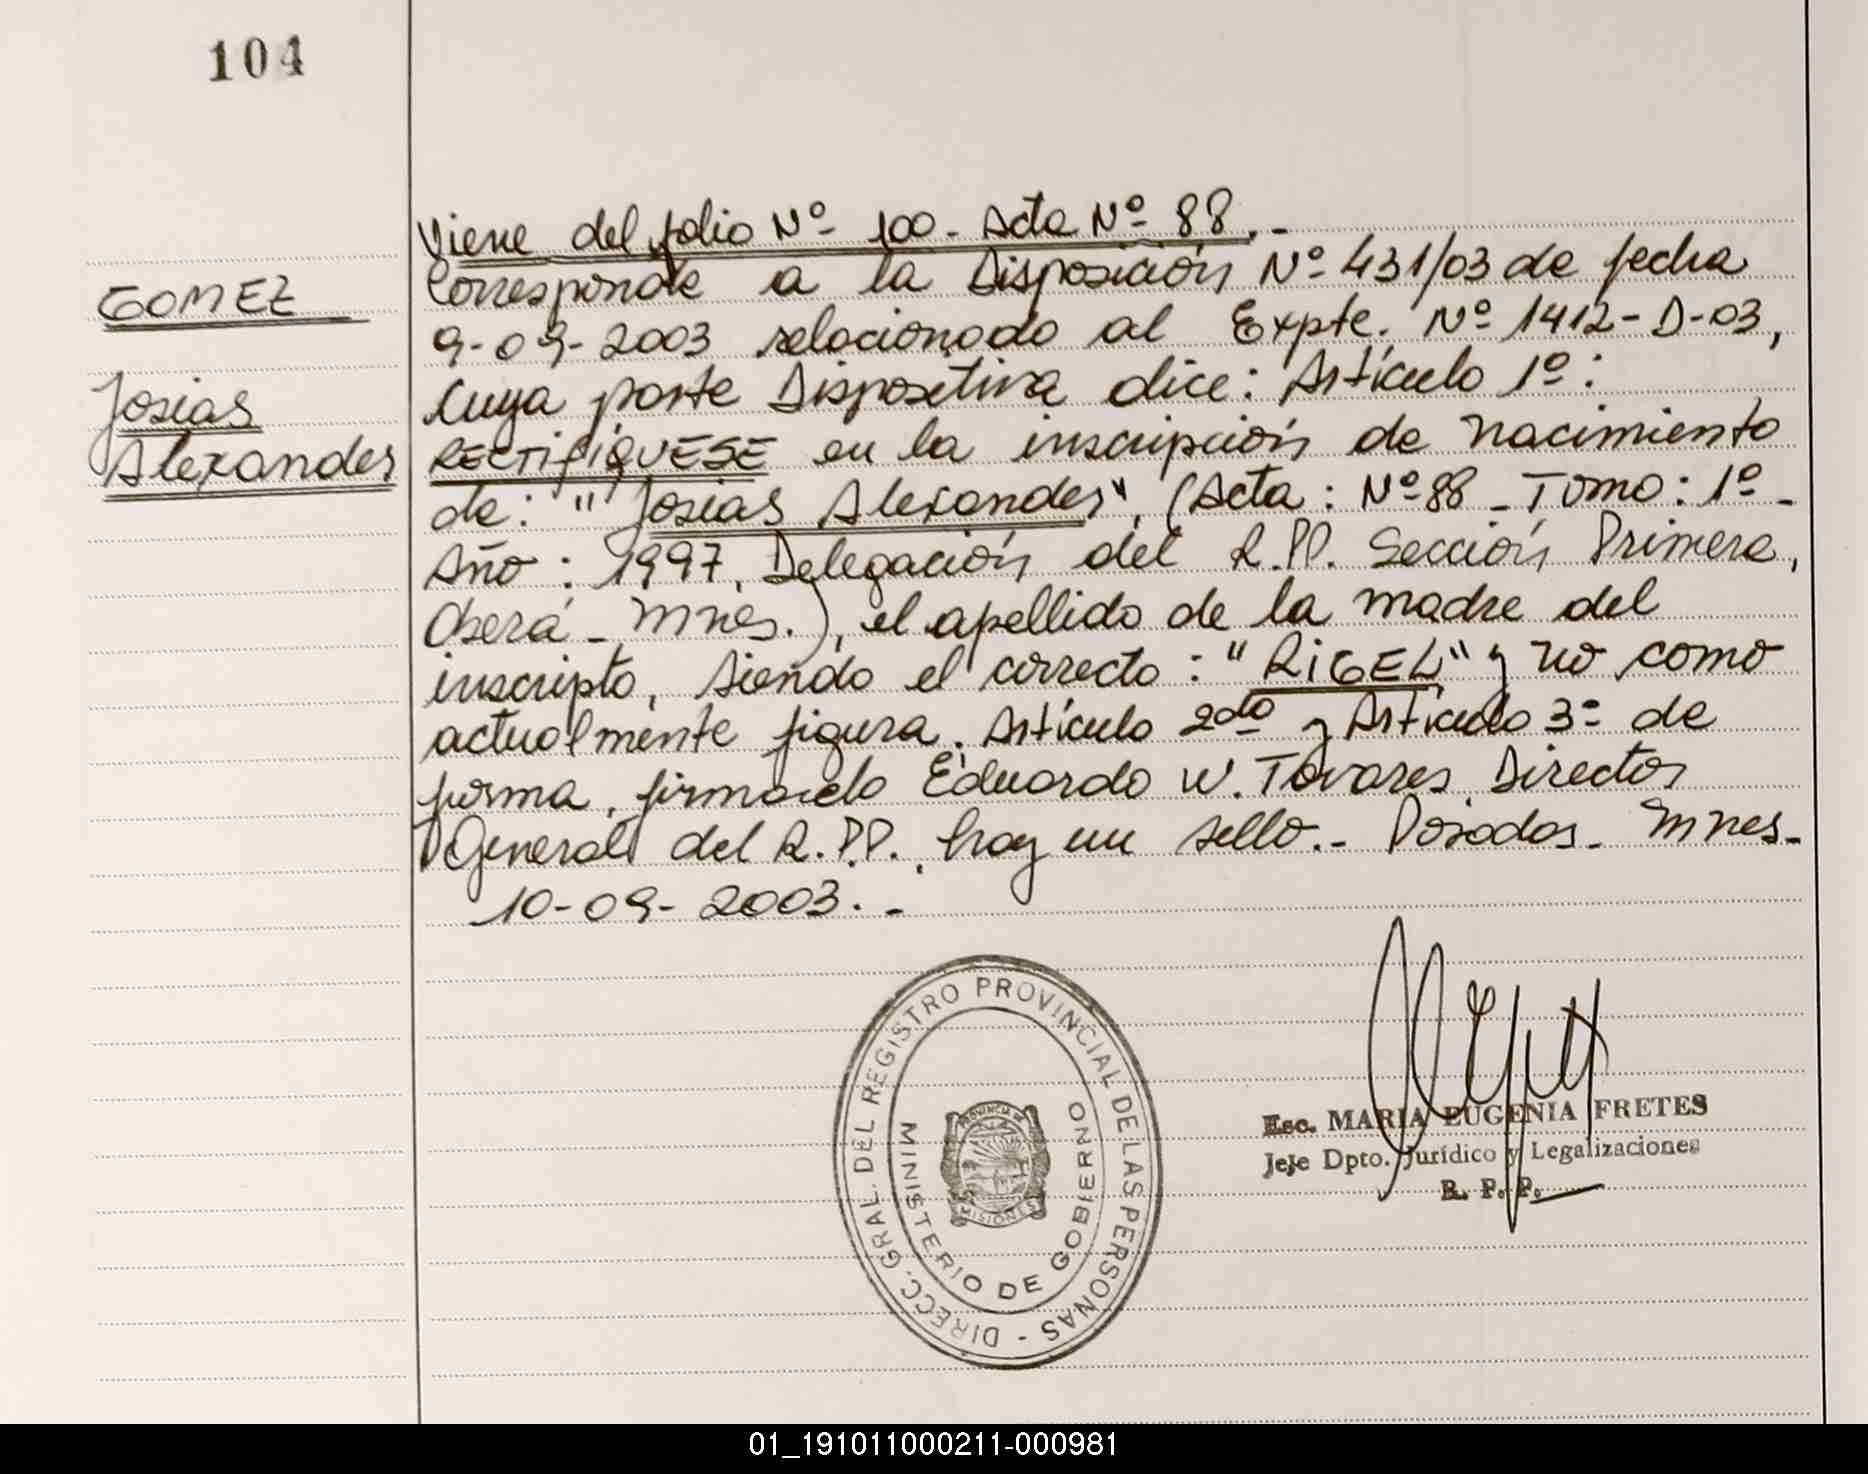 104
GOMEZ
Josias
Alexander
Viene del folio Nº 100 - Acta Nº 88.-
Corresponde a la Disposición Nº 431/03 de fecha
9-09-2003 relacionado al Expte. Nº 1412-D-03,
Cuya parte Dispositiva dice: Artículo 1º:
RECTIFIQUESE en la inscripción de nacimiento
de: "Josias Alexander", (Acta: Nº 88 - Tomo: 1º -
Año: 1997, Delegación del R.P.P. Sección Primera,
Oberá - Mnes.), el apellido de la madre del
inscripto, siendo el correcto: "RIGEL" y no como
actualmente figura. Artículo 2do y Artículo 3º de
forma, firmado Eduardo W. Tovares, Director
General del R.P.P., hay un sello.- Posadas - Mnes-
10-09-2003.-
DIRECC. GRAL. DEL REGISTRO PROVINCIAL DE LAS PERSONAS -
MINISTERIO DE GOBIERNO
PROVINCIA DE
MISIONES
Esc. MARIA EUGENIA FRETES
Jefe Dpto. Jurídico y Legalizaciones
R. P. P.
01_191011000211-000981